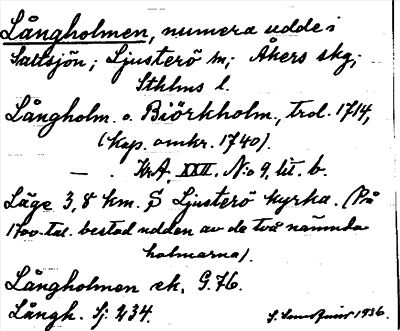 Långholmen, numera udde i
Saltsjön; Ljusterö sn; Åkers skg;
Sthlms l.
Långholm. o. Biörkholm, trol. 1714,
(kop. omkr. 1740).
— . KrA. XXII. No 9, lit. b.
Läge 3,8 km. S Ljusterö kyrka. (På
1700-tal. bestod udden av de två nämnda
holmarna).
Långholmen ek. G.76.
Långh. Sj: 234.
1936.